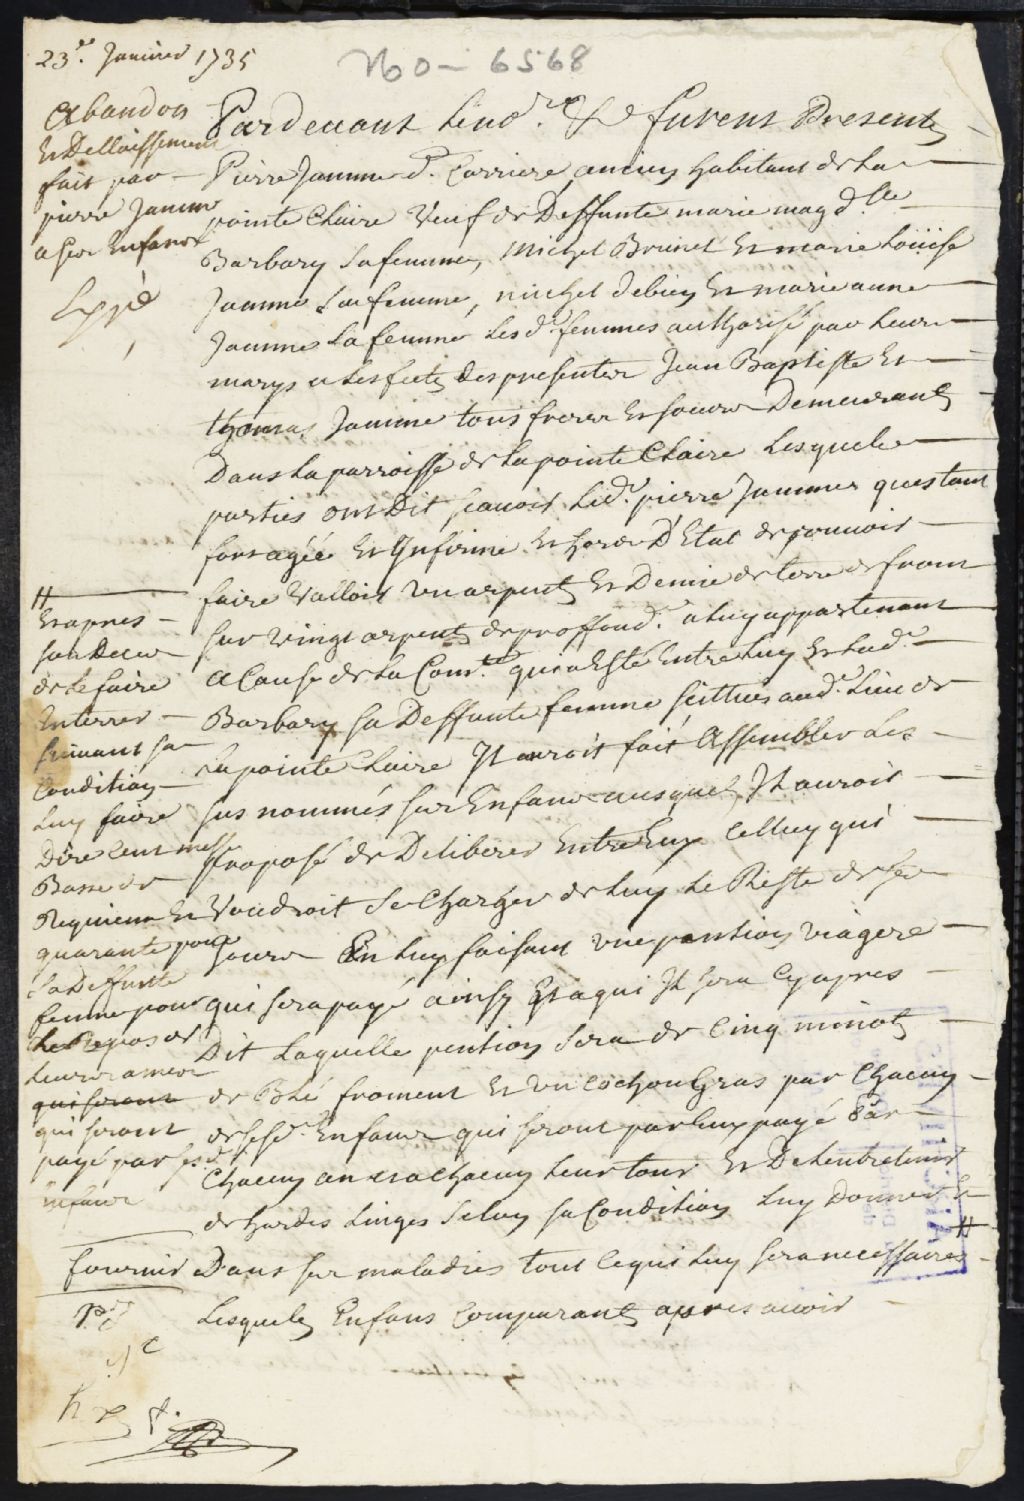 23.e Janvier 1735
No - 6568
Abandon
Et Dellaissement
fait par
pierre Jamme
a ses Enfans
Expé
Pardevant Le no.re &c furent Presents
Pierre Jamme d. Carriere ancien habitant de La
pointe Claire Veuf de Deffunte marie magd.lle
Barbary Sa femme, Michel Brunet Et marie Loüise
Jamme Sa femme, michel debien Et marie anne
Jamme Sa femme Lesd. femmes authorisé par Leurs
marys a L'esfects des presentes Jean Baptiste Et
thomas Jamme tous freres Et soeurs Demeurants
Dans La parroisse de La pointe Claire Lesquels
parties ont Dit scavoir Led. pierre Jammes questant
fort agée Et Infirme Et hors D'Etat de pouvoir
faire Valloir un arpent Et Demie de terre de front
sur vingt arpents de proffond. a luy appartenant
a Cause de La Com.té qui a Esté Entre Luy Et Lad.
Barbary sa Deffunte femme scittuée aud. Lieu de
La pointe Claire Il auroit fait Assembler Les
sus nommés ses Enfans ausquels Il auroit
proposé de Deliberer Entre Eux Celluy qui
Voudroit Se Charger de luy Le Reste de ses
jours En luy faisant une pention viagere
qui sera payé ainsy Et a qui Il sera Cy apres
Dit Laquelle pention Sera de Cinq minots
de Blé froment Et un Cochon Gras par Chacun
de sesd. Enfans qui seront par Eux payé Par
Chacun an Et a Chacun Leur tour Et De Lentretenir
de hardes Linges Selon sa Condition Luy Donner Et
fournir Dans ses maladies tout Ce qui Luy sera necessaires #
Lesquels Enfans Comparants apres avoir
#
Et apres
son Deces
de Le faire
Enterrer
suivant sa
Condition
Luy faire
Dire Cent messe
Basse de
Requiem Et
quarante pour
Sa Deffunte
femme pour
Le Repos de
Leurs ames
qui seront
qui seront
payé par sesd.
Enfans